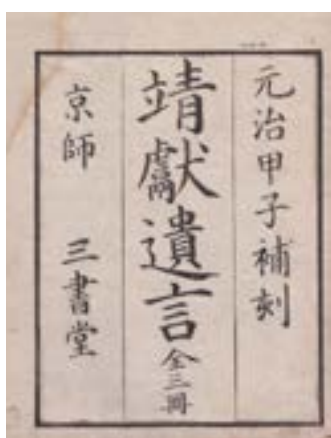 元治甲子補刻
靖獻遺言 全三冊
京師 三書堂